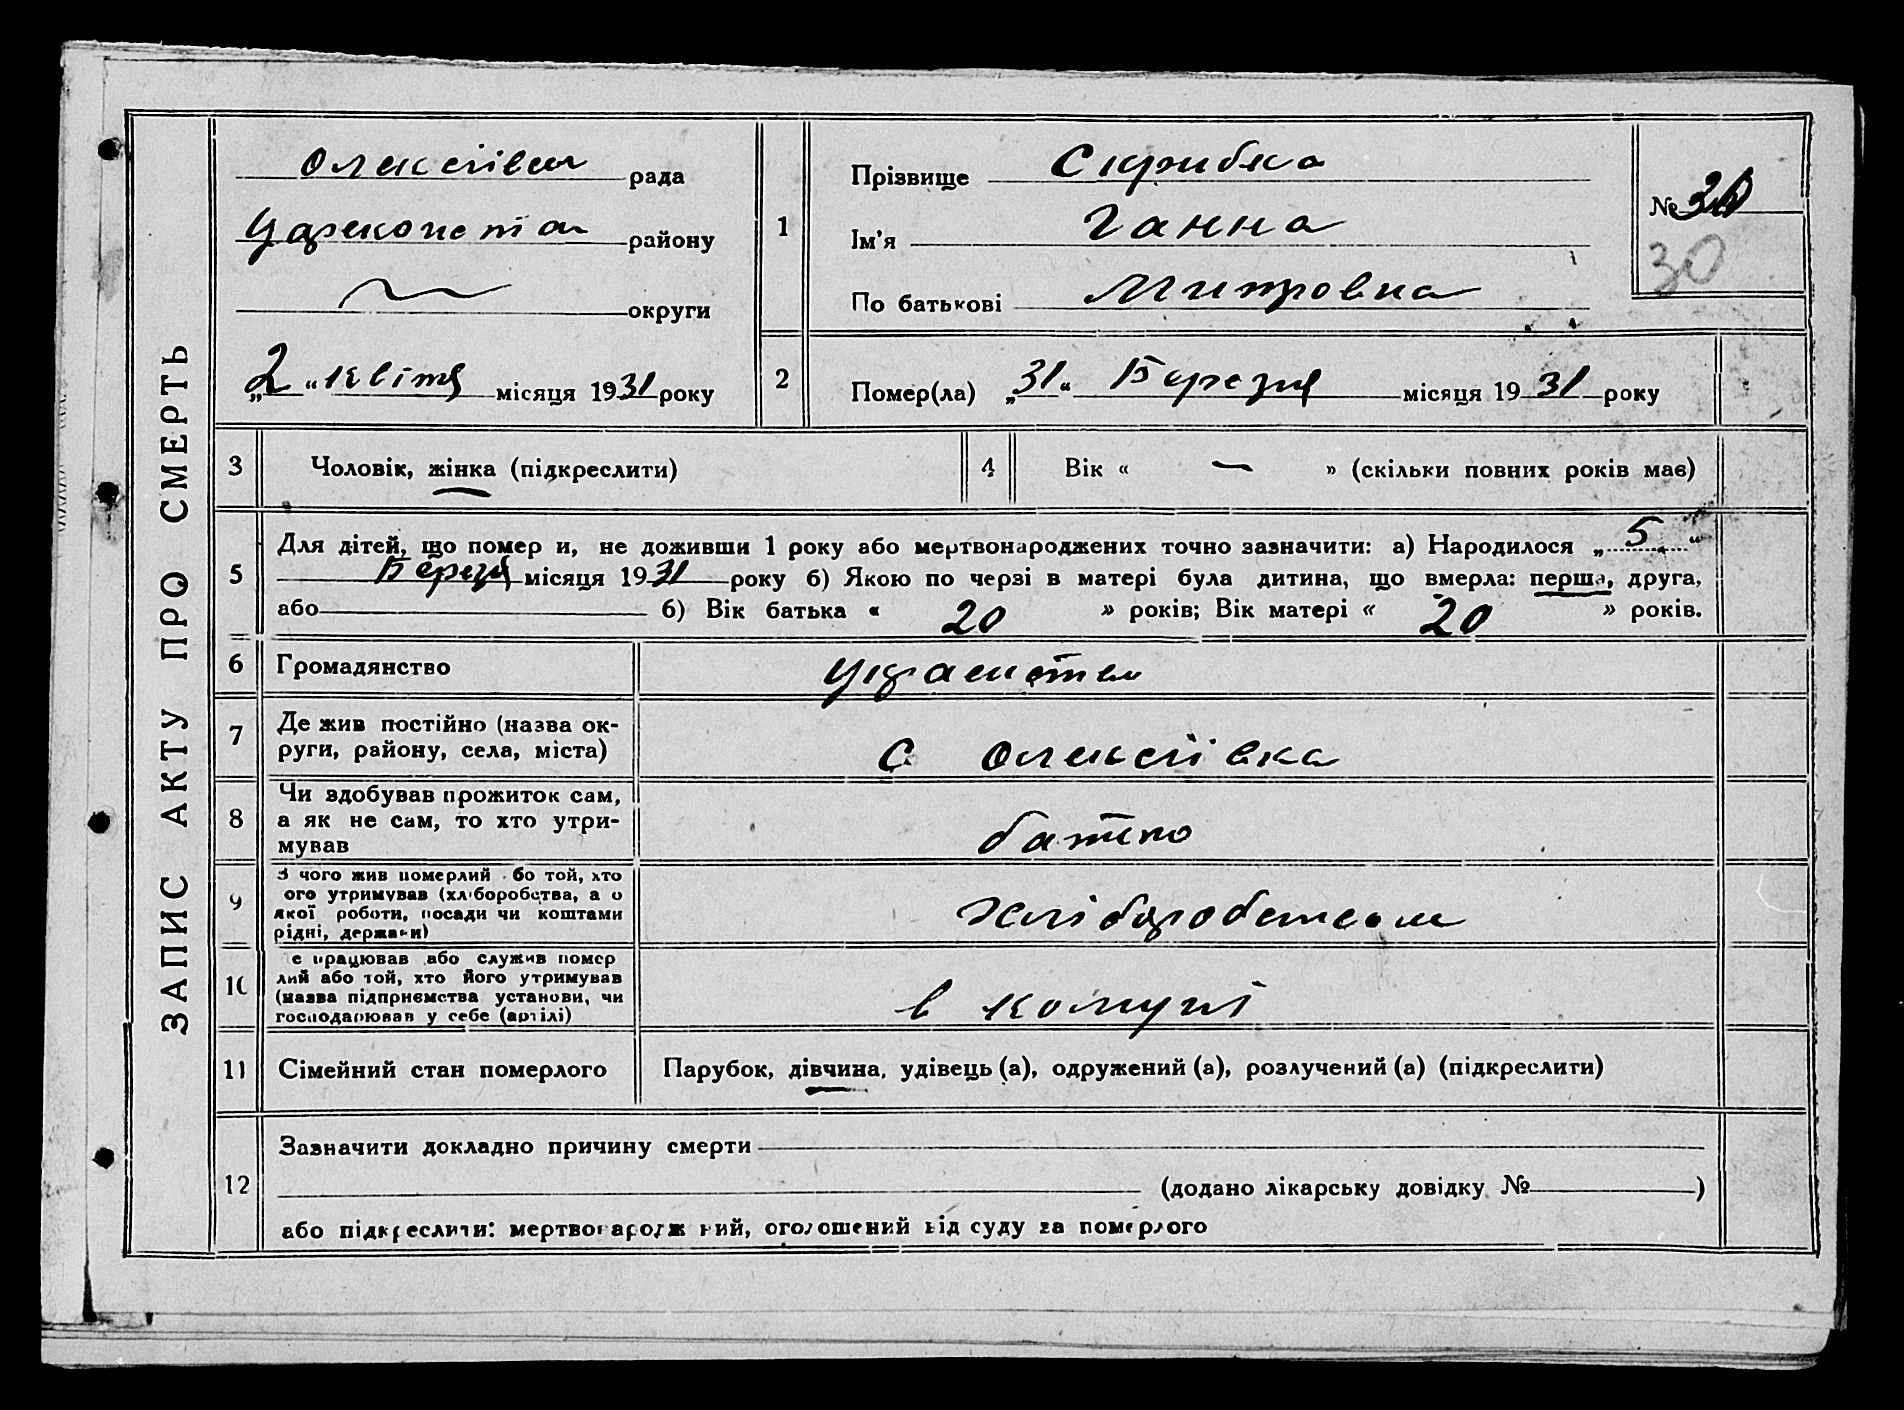 ЗАПИС АКТУ ПРО СМЕРТЬ
рада
району
округи
„2“ квітня місяця 1931 року
1
Прізвище Скрибка
Ім'я Ганна
По батькові Митровна
№ 30
30
2
Помер(ла) „31“ Березня місяця 1931 року
3
Чоловік, жінка (підкреслити)
4
Вік « — » (скільки повних років має)
5
Для дітей, що помер и, не доживши 1 року або мертвонароджених точно зазначити: а) Народилося „5“
Березня місяця 1931 року б) Якою по черзі в матері була дитина, що вмерла: перша, друга,
або б) Вік батька « 20 » років; Вік матері « 20 » років.
6
Громадянство
7
Де жив постійно (назва ок-
руги, району, села, міста)
с Олексіївка
8
Чи здобував прожиток сам,
а як не сам, то хто утри-
мував
батько
9
З чого жив померлий бо той, хто
ого утримував (хліборобства, а о
якої роботи, посади чи коштами
рідні, держави)
хліборобством
10
е працював або служив помер
лий або той, хто його утримував
(назва підприємства установи, чи
господарював у себе (артілі)
в комуні
11
Сімейний стан померлого
Парубок, дівчина, удівець (а), одружений (а), розлучений (а) (підкреслити)
12
Зазначити докладно причину смерти
(додано лікарську довідку № )
або підкреслити: мертвонародж ний, оголошений від суду за померлого